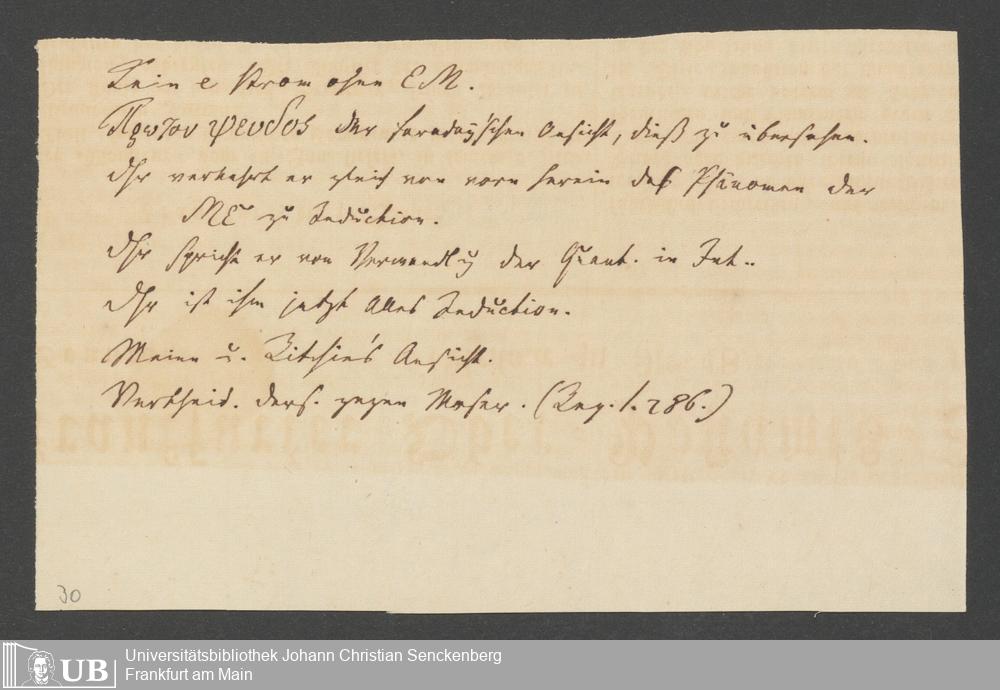 Kein e Strom ohne EM.
Πρωτον ψευδος der Faraday'schen Ansicht, dieß zu übersehen.
Dhr verkehrt er gleich von vorn herein das Phänomen der
ME zu Induction.
Dhr spricht er von Verwandlg der Quant. in Int..
Dhr ist ihm jetzt Alles Induction.
Meine u. Ritchie's Ansicht.
Vertheid. ders. gegen Moser. (Rep. 1. 286.)
30
UB
Universitätsbibliothek Johann Christian Senckenberg
Frankfurt am Main